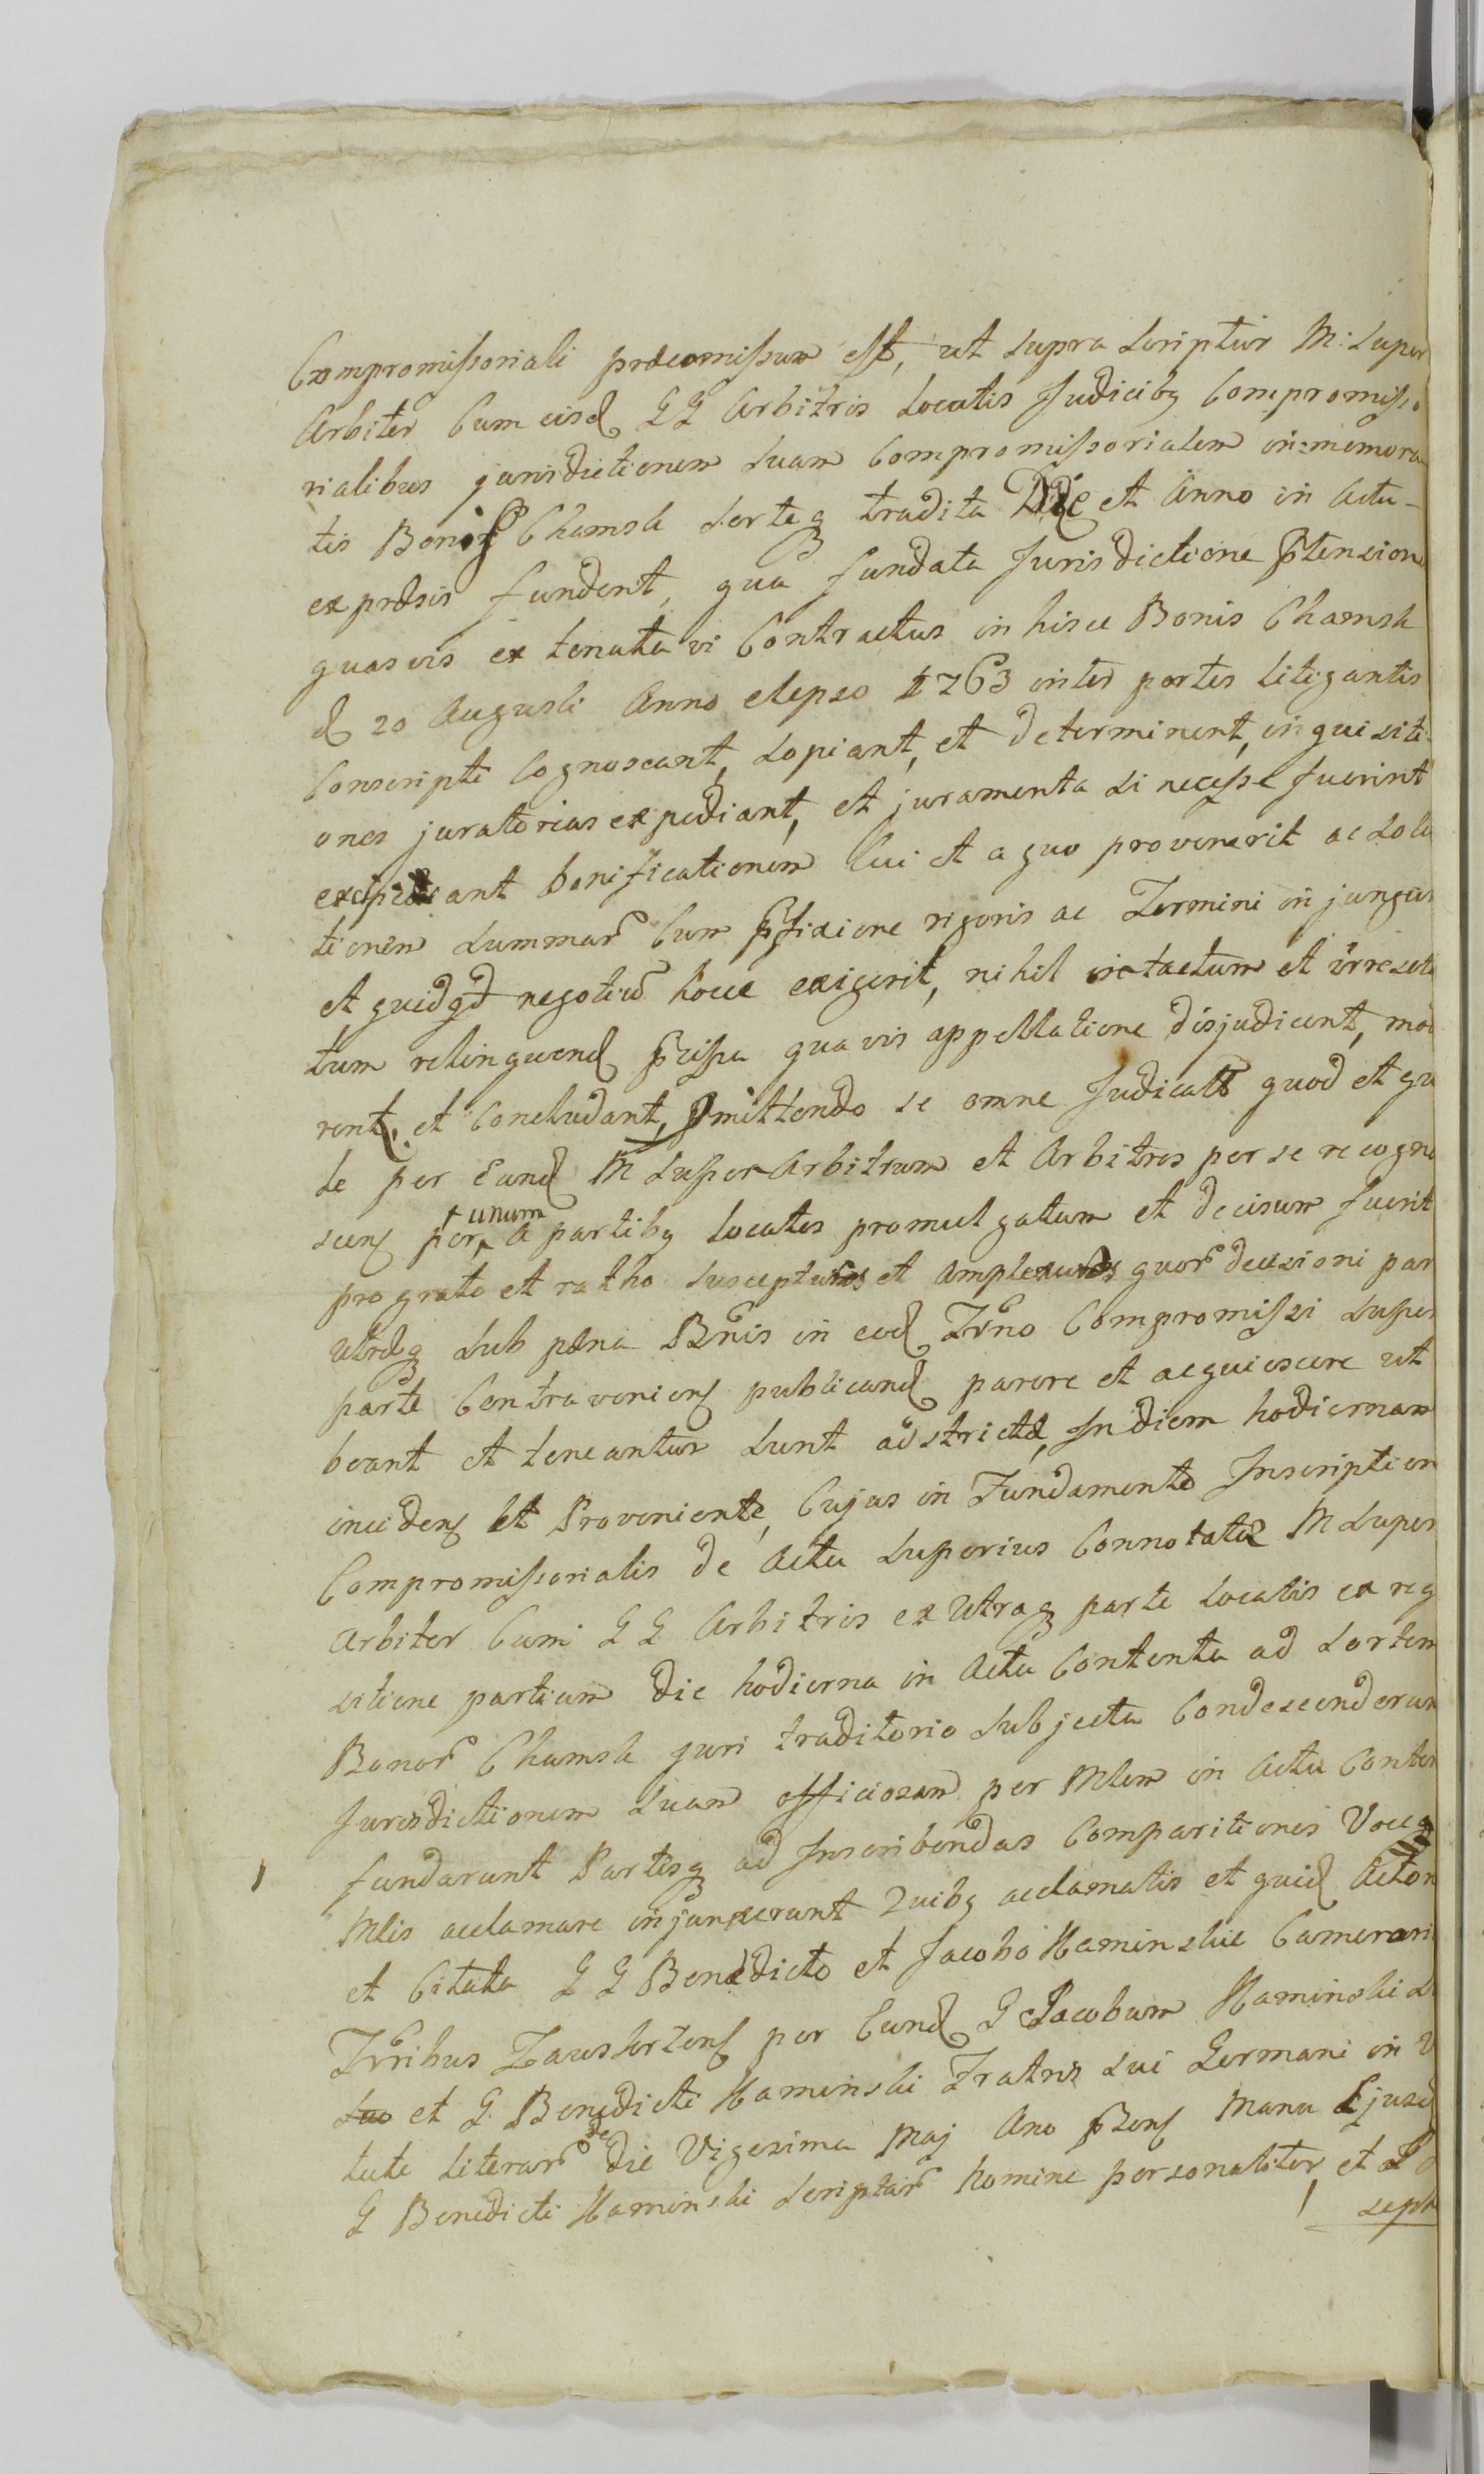 Compromissoriali præcomissum est, ut supra scriptus M: Super
Arbiter Cum eisd GG Arbitris Locatis Judicibq Compromisso
rialibus jurisdictionem suam Compromissorialem in memora
tis Bonis Chamsk sorteq tradita Die et Anno in Actu
expræsis fundent, qua fundata Jurisdictione ptension
quasvis ex tenuta vi Contractus in hisce Bonis Chamsk
d 20 Augusti Anno elepso 1763 inter partes litigantes
Conscripti Cognoscant, sopiant, et determinent, inquisiti
ones juratorias expediant, et juramenta si necesse fuerint
excipiant bonificationem Cui et a quo provenerit ac solu
tionem summar Cum pfixione rigoris ac Termini injungan
et quidqd negotiu hocce exigerit, nihil intactum et irresolu
tum relinquend pcissa quavis appellatione disjudicent, mod
rent, et Concludant, pmittendo se omne Judicatt quod et qu
le per Eund M Super Arbitrum et Arbitros per se recogno
scen per unum a partibq locatos promulgatum et decisum fuerit
pro grato et ratho suscepturos et amplexuros quor decisioni par
utræq sub pæna Bnis in eod Trno Compromissi super
parte Contravenien publicand parere et acquiescere ut
beant et teneantur sunt adstrictæ, In diem hodiernam
inciden et Proveniente, Cujus in Fundamento Inscription
Compromissorialis de Actu superius Connotatæ M Super
Arbiter Cum GG Arbitris ex Utraq parte locatis ex req
sitione partium die hodierna in Actu Contenta ad sortem
Bonor Chamsk juri traditorio subjecta Condescenderun
Jurisdictionem suam officiosam per Mlem in Actu Conten
fundarunt Partesq ad Inscribendas Comparitiones Voce
Mlis acclamare injunxerunt Quibq acclamatis et quid Acton
et Citata GG Benedicto et Jacobo Kaminskie Camerari
Trribus Zausorten per Eund G Jacobum Kaminski
et G. Benedicti Kaminski Fratris sui Germani in V
tute literar de die Vigesima Maj Ano psen Manu Ejusd
G Benedicti Kaminski scriptar Nomine personaliter, et
sept